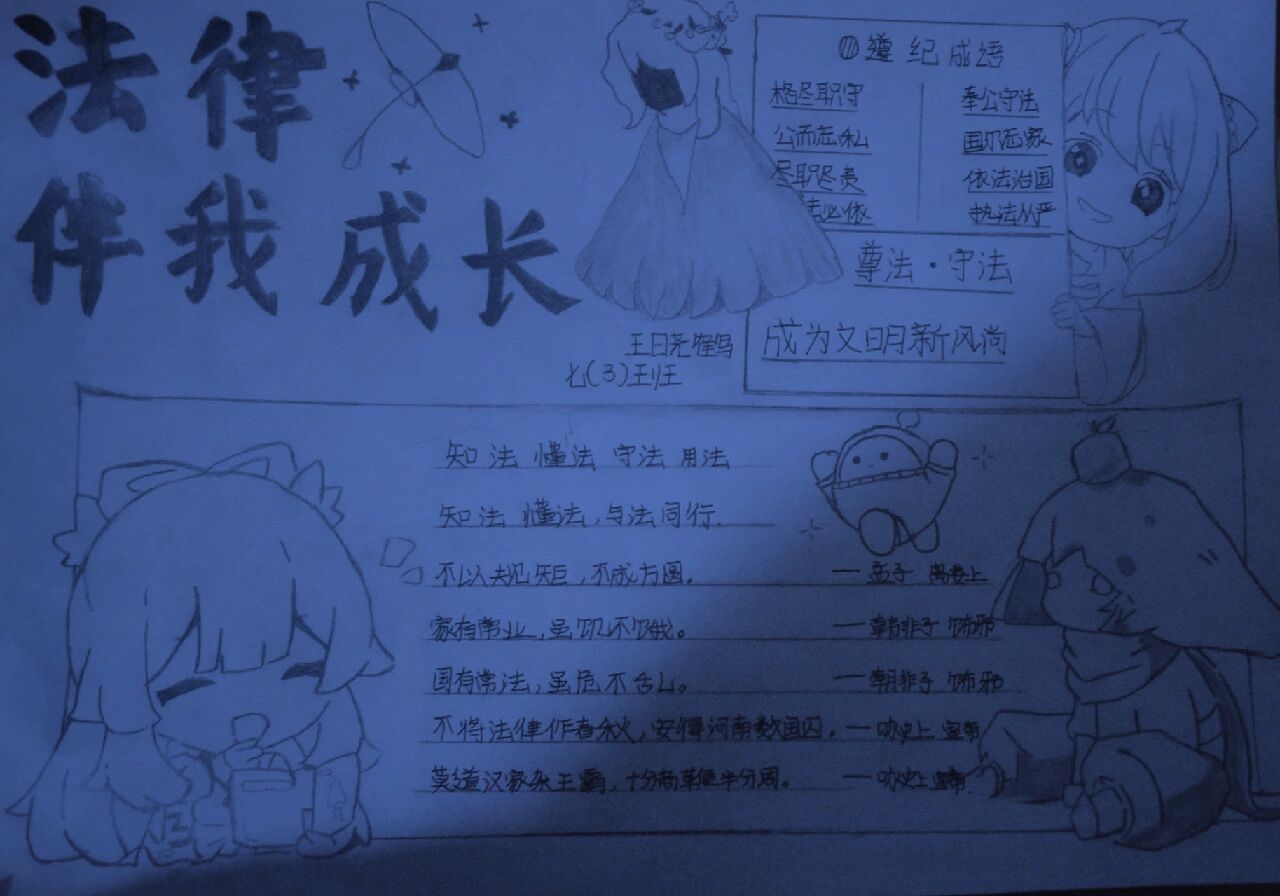 法律
伴我成长
遵纪成语
格尽职守 奉公守法
公而忘私 国尔忘家
尽职尽责 依法治国
法必依 执法从严
尊法·守法
成为文明新风尚
七(3)班
知法 懂法 守法 用法
知法 懂法,与法同行.
不以规矩,不成方圆。 — 孟子 离娄上
家有常业,虽饥不饿。 — 韩非子 饰邪
国有常法,虽危不亡。 — 韩非子 饰邪
不将法律作春秋,安得河南数国囚。 — 咏史上 宣帝
莫道汉家杂王霸,十分商鞅半分周。 — 咏史上 宣帝